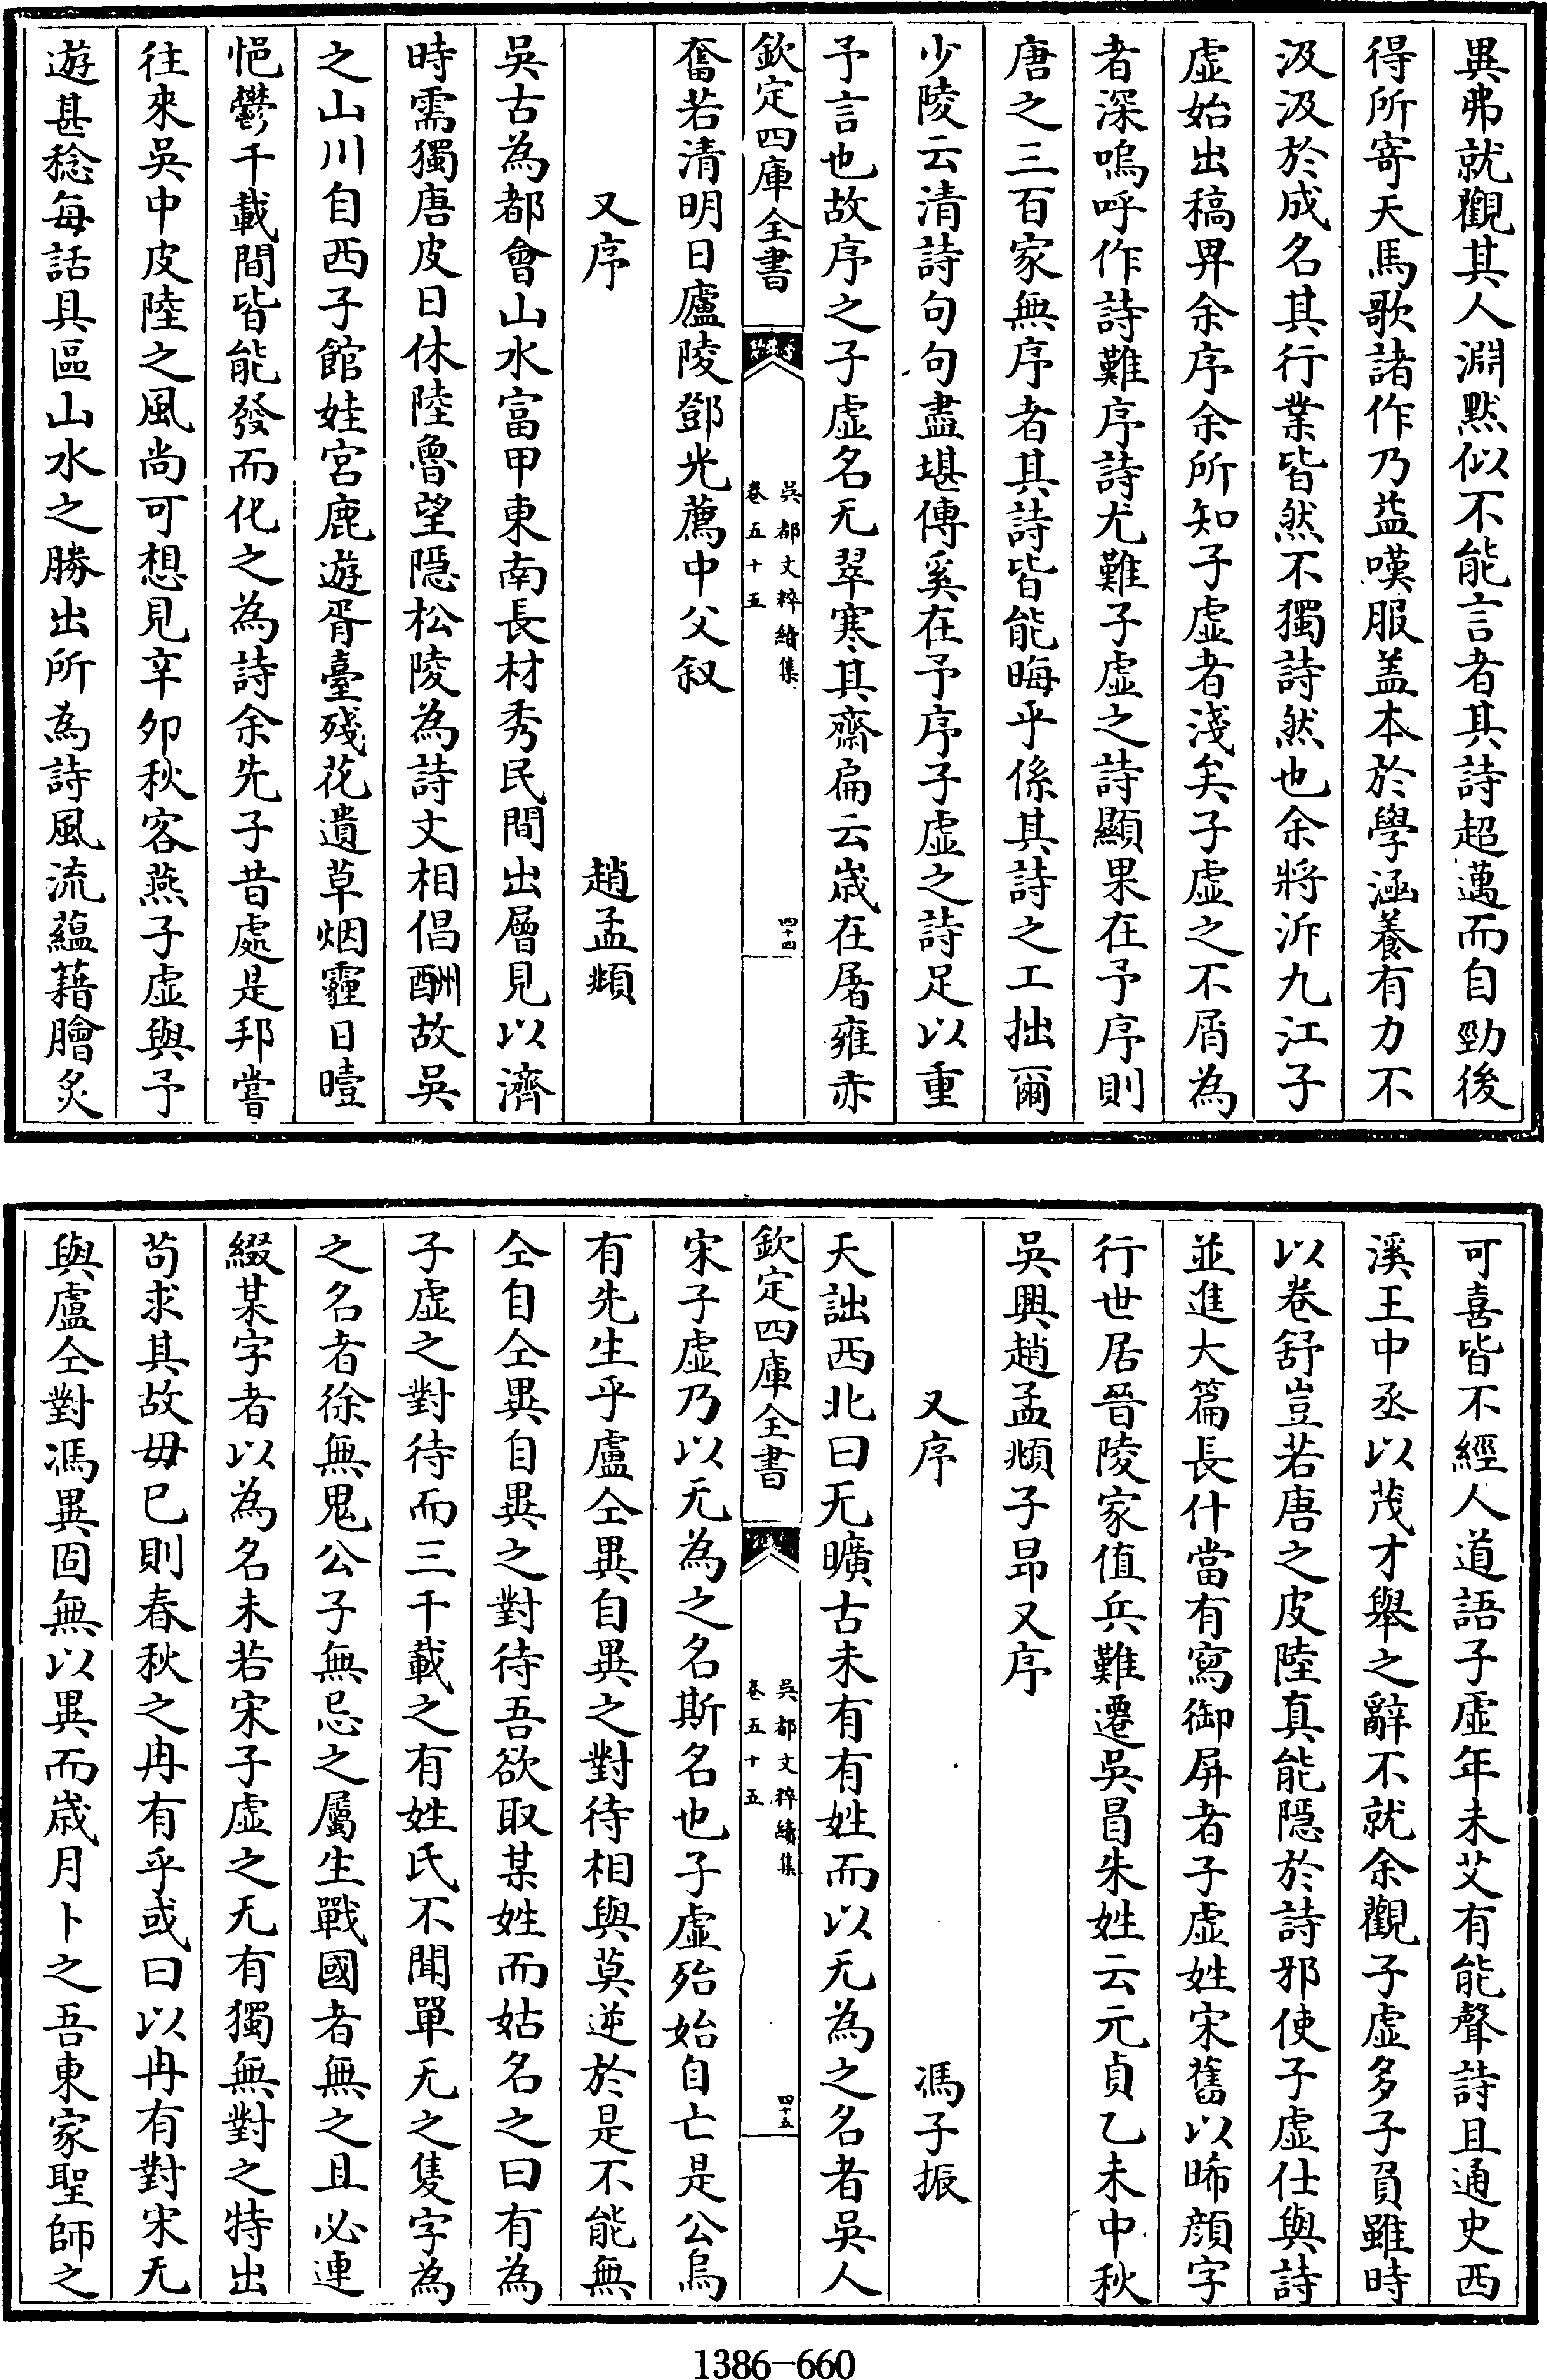 異弗就觀其人淵黙似不能言者其詩超邁而自勁後
得所寄天馬歌諸作乃益嘆服盖本於學涵養有力不
汲汲於成名其行業皆然不獨詩然也余將泝九江子
虛始出稿畀余序余所知子虛者淺矣子虛之不屑為
者深嗚呼作詩難序詩尤難子虛之詩顯果在予序則
唐之三百家無序者其詩皆能晦乎係其詩之工拙爾
少陵云清詩句句盡堪傳奚在予序子虛之詩足以重
予言也故序之子虛名无翠寒其齋扁云嵗在屠雍赤
欽定四庫全書
吳都文粹續集
卷五十五
四十四
奮若清明日廬陵鄧光薦中父叙
又序
趙孟頫
吳古為都會山水富甲東南長材秀民間出層見以濟
時需獨唐皮日休陸魯望隠松陵為詩文相倡酬故吳
之山川自西子館娃宮鹿遊胥臺殘花遺草烟霾日曀
悒鬱千載間皆能發而化之為詩余先子昔處是邦嘗
往來吳中皮陸之風尚可想見辛夘秋客燕子虛與予
遊甚稔每話具區山水之勝出所為詩風流蘊藉膾炙
可喜皆不經人道語子虛年未艾有能聲詩且通史西
溪王中丞以茂才舉之辭不就余觀子虛多子員雖時
以巻舒豈若唐之皮陸真能隠於詩邪使子虛仕與詩
並進大篇長什當有寫御屏者子虛姓宋舊以晞顔字
行世居晉陵家值兵難遷吳冒朱姓云元貞乙未中秋
吳興趙孟頫子昂又序
又序
馮子振
天詘西北曰无曠古未有有姓而以无為之名者吳人
欽定四庫全書
吳都文粹續集
卷五十五
四十五
宋子虛乃以无為之名斯名也子虛殆始自亡是公烏
有先生乎盧仝異自異之對待相與莫逆於是不能無
仝自仝異自異之對待吾欲取某姓而姑名之曰有為
子虛之對待而三千載之有姓氏不聞單无之隻字為
之名者徐無鬼公子無忌之屬生戰國者無之且必連
綴某字者以為名未若宋子虛之无有獨無對之特出
茍求其故毋已則春秋之冉有乎或曰以冉有對宋无
與盧仝對馮異固無以異而嵗月卜之吾東家聖師之
1386-660